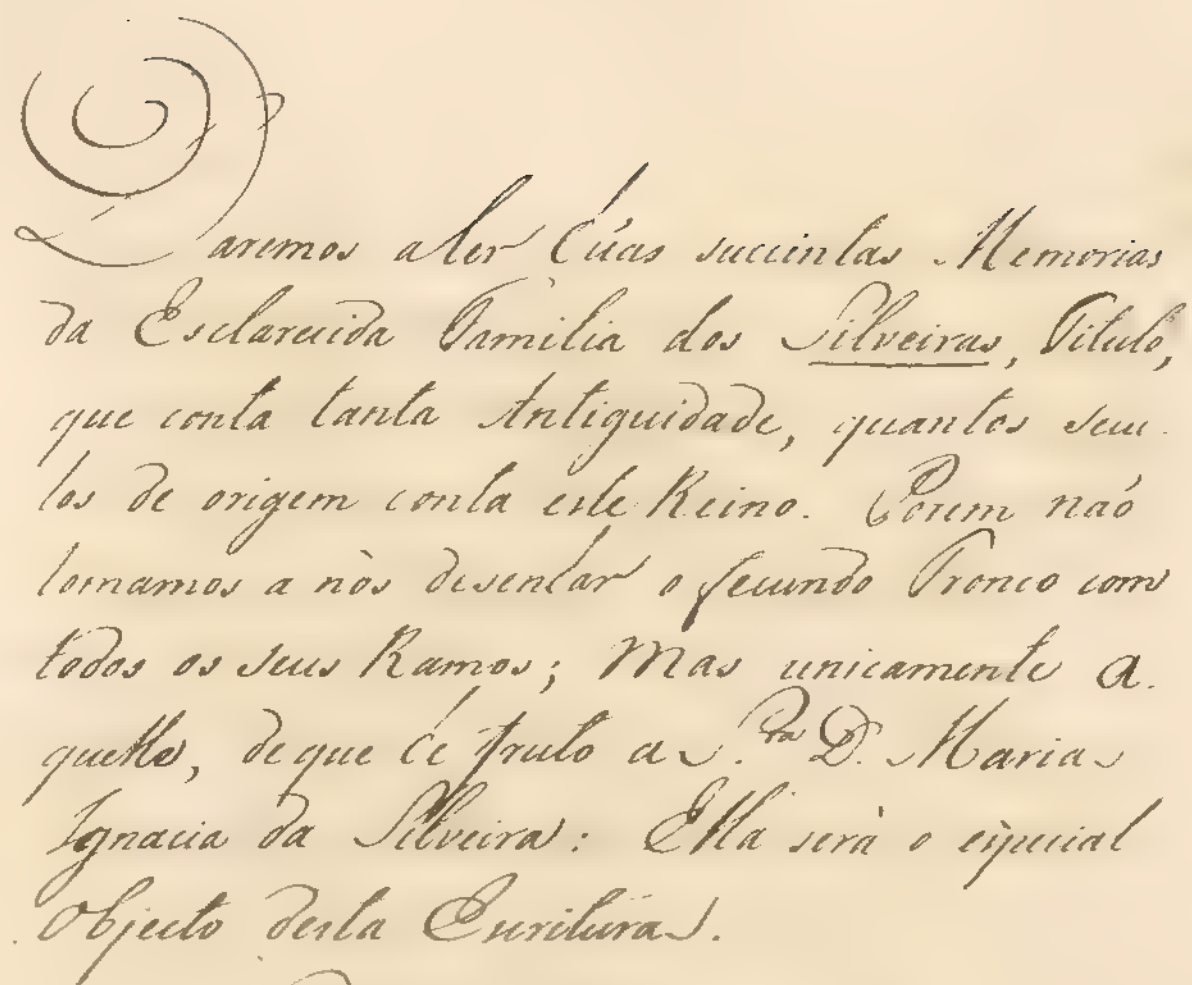 Daremos a ler húas succintas Memorias
da Esclarecida Familia dos Silveiras, Titulo,
que conta tanta Antiguidade, quantos secu-
los de origem conta este Reino. Porem naó
tomamos a nòs desentar o fecundo Tronco com
todos os seus Ramos; Mas unicamente a-
quelle, de que hé fruto a S.ra D. Maria
Ignacia da Silveira: Ella serà o especial
Objecto desta Escritura.